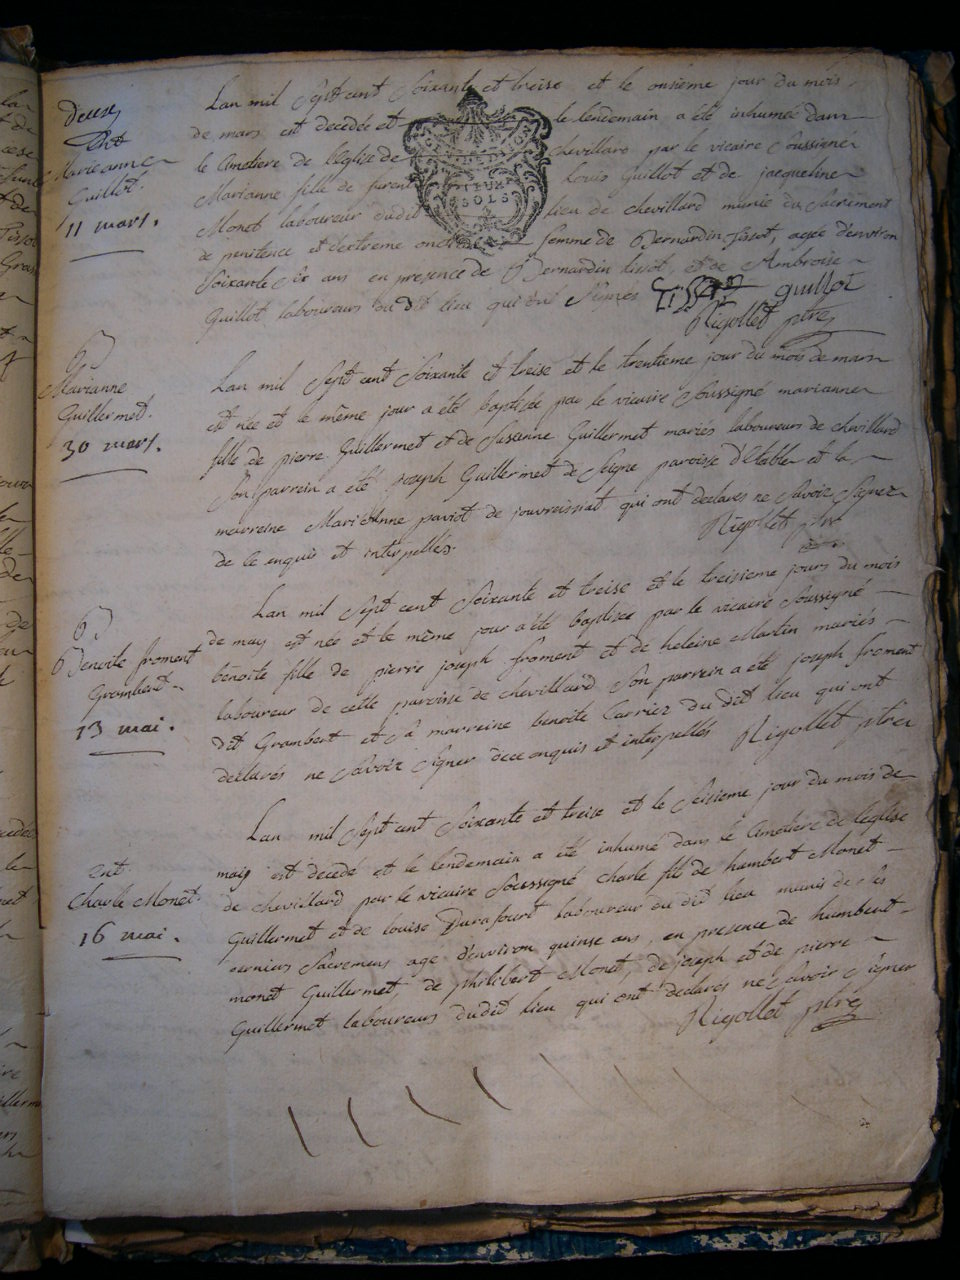 deces
Ent
Marieanne
Guillot.
11 mars.
Lan mil sept cent soixante et treise et le onsieme jour du mois
de mars est decedée et le lendemain a été inhumée dans
le cimetiere de léglise de chevillard par le vicaire soussigné
Marianne fille de furent Louis Guillot et de jacqueline
Monet laboureur dudit lieu de chevillard munie du sacrement
de penitence et dextreme onction femme de Bernardin tissot, agée d'environ
soixante six ans en presence de Bernardin tissot, et de Ambroise
Guillot laboureurs du dit lieu qui ont signés tissot guillot
Rigollet ptre
GENERALITE DIJON
DEUX
SOLS
B
Marianne
Guillermet.
30 mars.
Lan mil sept cent soixante et treise et le trentieme jour du mois de mars
est née et le même jour a été baptisée par le vicaire soussigné marianne
fille de pierre Guillermet et de Susanne Guillermet mariés laboureurs de chevillard
son parrein a été joseph Guillermet de Seigne paroisse d'Etable et la
marreine Marieanne paviot de jouvreissiat qui ont declares ne savoir signer
de ce enquis et interpellés. Rigollet ptre
B
Benoite froment
Grambert
13 mai.
Lan mil sept cent soixante et treise et le treisieme jours du mois
de may est née et le même jour a été baptisée par le vicaire soussigné
benoite fille de pierre joseph froment et de heleine Martin mariés
laboureur de cette paroisse de chevillard son parrein a été joseph froment
dit Grambert et sa marreine benoite Carrier du dit lieu qui ont
declarés ne savoir signer de ce enquis et interpellés Rigollet ptre
Ent.
Charle Monet.
16 mai.
Lan mil sept cent soixante et treise et le seisieme jour du mois de
maij est decedé et le lendemain a été inhumé dans le cimetiere de léglise
de chevillard par le vicaire soussigné charle fils de humbert Monet
Guillermet et de louise Durafourt laboureur du dit lieu munis de ses
derniers sacremens age d'environ quinse ans, en presence de humbert
monet Guillermet, de philibert Monet, de joseph et de pierre
Guillermet laboureurs dudit lieu qui ont declares ne savoir signer
Rigollet ptre